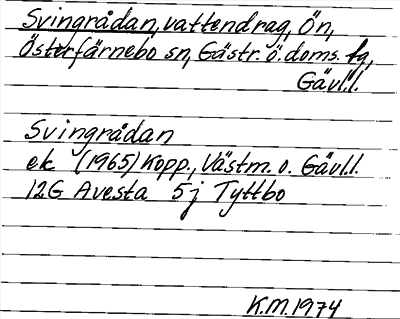 Svingrådan, vattendrag, Ön,
Österfärnebo sn, Gästr. ö. doms. tg,
Gävl.l.
Svingrådan
ek (1965) Kopp., Västm. o. Gävl.l.
12G Avesta 5j Tyttbo
K.M.1974